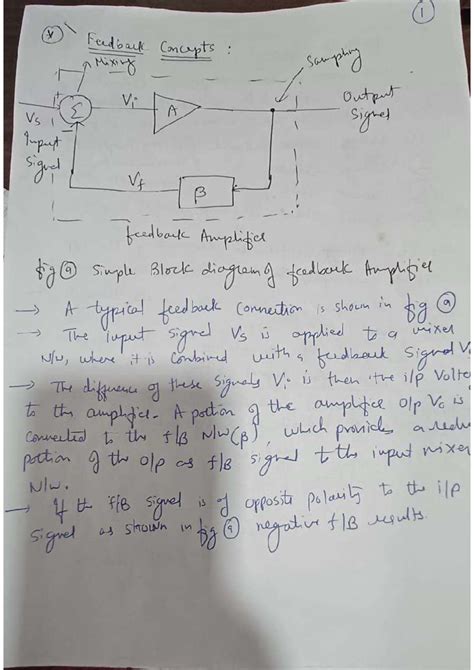 1
* Feedback Concepts :
Mixing
Sampling
+
Σ
Vi
A
Output
Signal
Vs
Input
Signal
-
Vf
β
feedback Amplifier
fig (a) Simple Block diagram of feedback Amplifier
→ A typical feedback Connection is shown in fig (a)
→ The input signal Vs is applied to a mixer
N/w, where it is Combined with a feedback Signal V
→ The difference of these Signals Vi is then the i/p Volta
to the amplifier. A portion of the amplifier o/p Vo is
Connected to the f/B N/w (β), which provides a redu
portion of the o/p as f/B signal to the input mixer
N/w.
→ If the f/B signal is of opposite polarity to the i/p
Signal as shown in fig (a) negative f/B results.